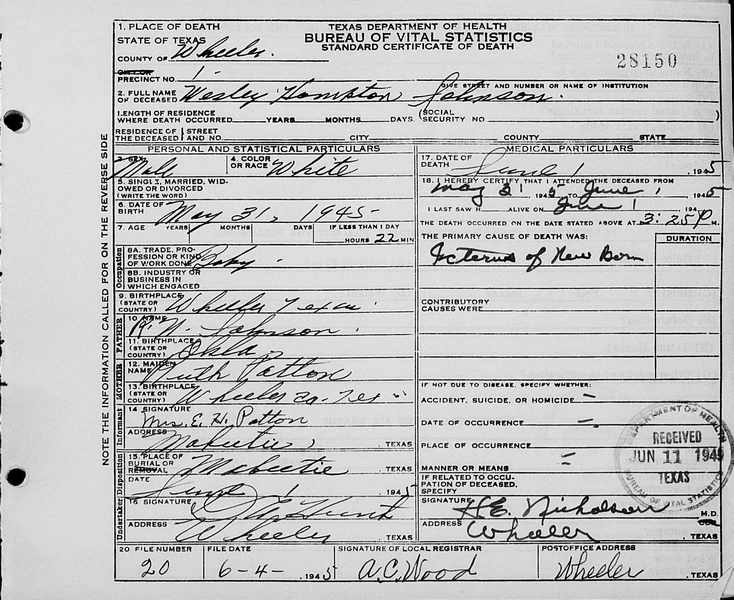 1. PLACE OF DEATH
STATE OF TEXAS
COUNTY OF Wheeler
PRECINCT NO. 1
TEXAS DEPARTMENT OF HEALTH
BUREAU OF VITAL STATISTICS
STANDARD CERTIFICATE OF DEATH
28150
GIVE STREET AND NUMBER OR NAME OF INSTITUTION
2. FULL NAME OF DECEASED Wesley Hampton Johnson
LENGTH OF RESIDENCE WHERE DEATH OCCURRED YEARS MONTHS DAYS (SOCIAL SECURITY NO.
RESIDENCE OF THE DECEASED STREET AND NO. CITY COUNTY STATE
PERSONAL AND STATISTICAL PARTICULARS
SEX Male
4. COLOR OR RACE White
5. SINGLE, MARRIED, WIDOWED OR DIVORCED (WRITE THE WORD)
6. DATE OF BIRTH May 31, 1945
7. AGE YEARS MONTHS DAYS IF LESS THAN 1 DAY
HOURS 22 MIN
Occupation
8A. TRADE, PROFESSION OR KIND OF WORK DONE Baby
8B. INDUSTRY OR BUSINESS IN WHICH ENGAGED
9. BIRTHPLACE (STATE OR COUNTRY) Wheeler Texas
FATHER
10. NAME R. N. Johnson
11. BIRTHPLACE (STATE OR COUNTRY) Okla
MOTHER
12. MAIDEN NAME Ruth Patton
13. BIRTHPLACE (STATE OR COUNTRY) Wheeler Co. Tex
Informant
14 SIGNATURE Mrs. E. H. Patton
ADDRESS Mobeetie, TEXAS
Undertaker Disposition
15. PLACE OF BURIAL OR REMOVAL Mobeetie, TEXAS
DATE June 1 1945
16 SIGNATURE Hunt
ADDRESS Wheeler, TEXAS
MEDICAL PARTICULARS
17. DATE OF DEATH June 1, 1945
18. I HEREBY CERTIFY THAT I ATTENDED THE DECEASED FROM
May 31 1945 TO June 1, 1945
I LAST SAW H ALIVE ON June 1 194
THE DEATH OCCURRED ON THE DATE STATED ABOVE AT 3:25 P M.
THE PRIMARY CAUSE OF DEATH WAS: DURATION
Icterus of New Born
CONTRIBUTORY CAUSES WERE:
IF NOT DUE TO DISEASE, SPECIFY WHETHER:
ACCIDENT, SUICIDE, OR HOMICIDE -
DATE OF OCCURRENCE -
PLACE OF OCCURRENCE -
MANNER OR MEANS
IF RELATED TO OCCUPATION OF DECEASED, SPECIFY
SIGNATURE H.E. Nicholson M.D.
ADDRESS Wheeler, TEXAS
DEPARTMENT OF HEALTH
RECEIVED
JUN 11 1945
TEXAS
BUREAU OF VITAL STATISTICS
20 FILE NUMBER FILE DATE SIGNATURE OF LOCAL REGISTRAR POSTOFFICE ADDRESS
20 6-4- 1945 A.C. Wood Wheeler, TEXAS
NOTE THE INFORMATION CALLED FOR ON THE REVERSE SIDE